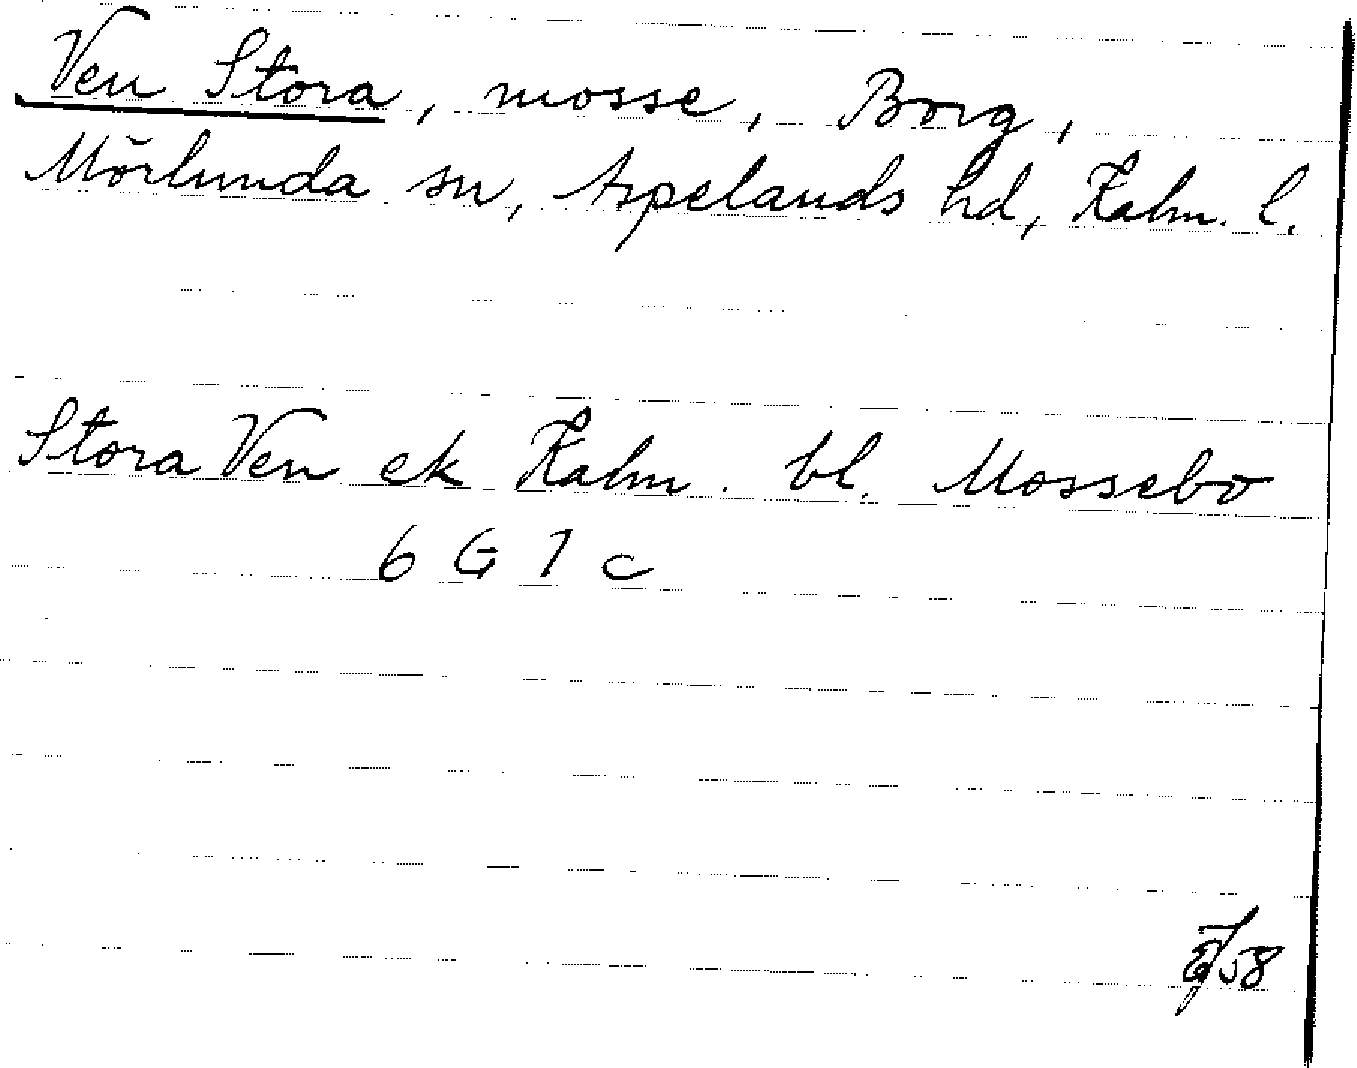 Ven Stora, mosse, Borg,
Mörlunda sn, Aspelands hd, Kalm. l.
Stora Ven ek Kalm. bl. Mossebo
6 G 7 c
58